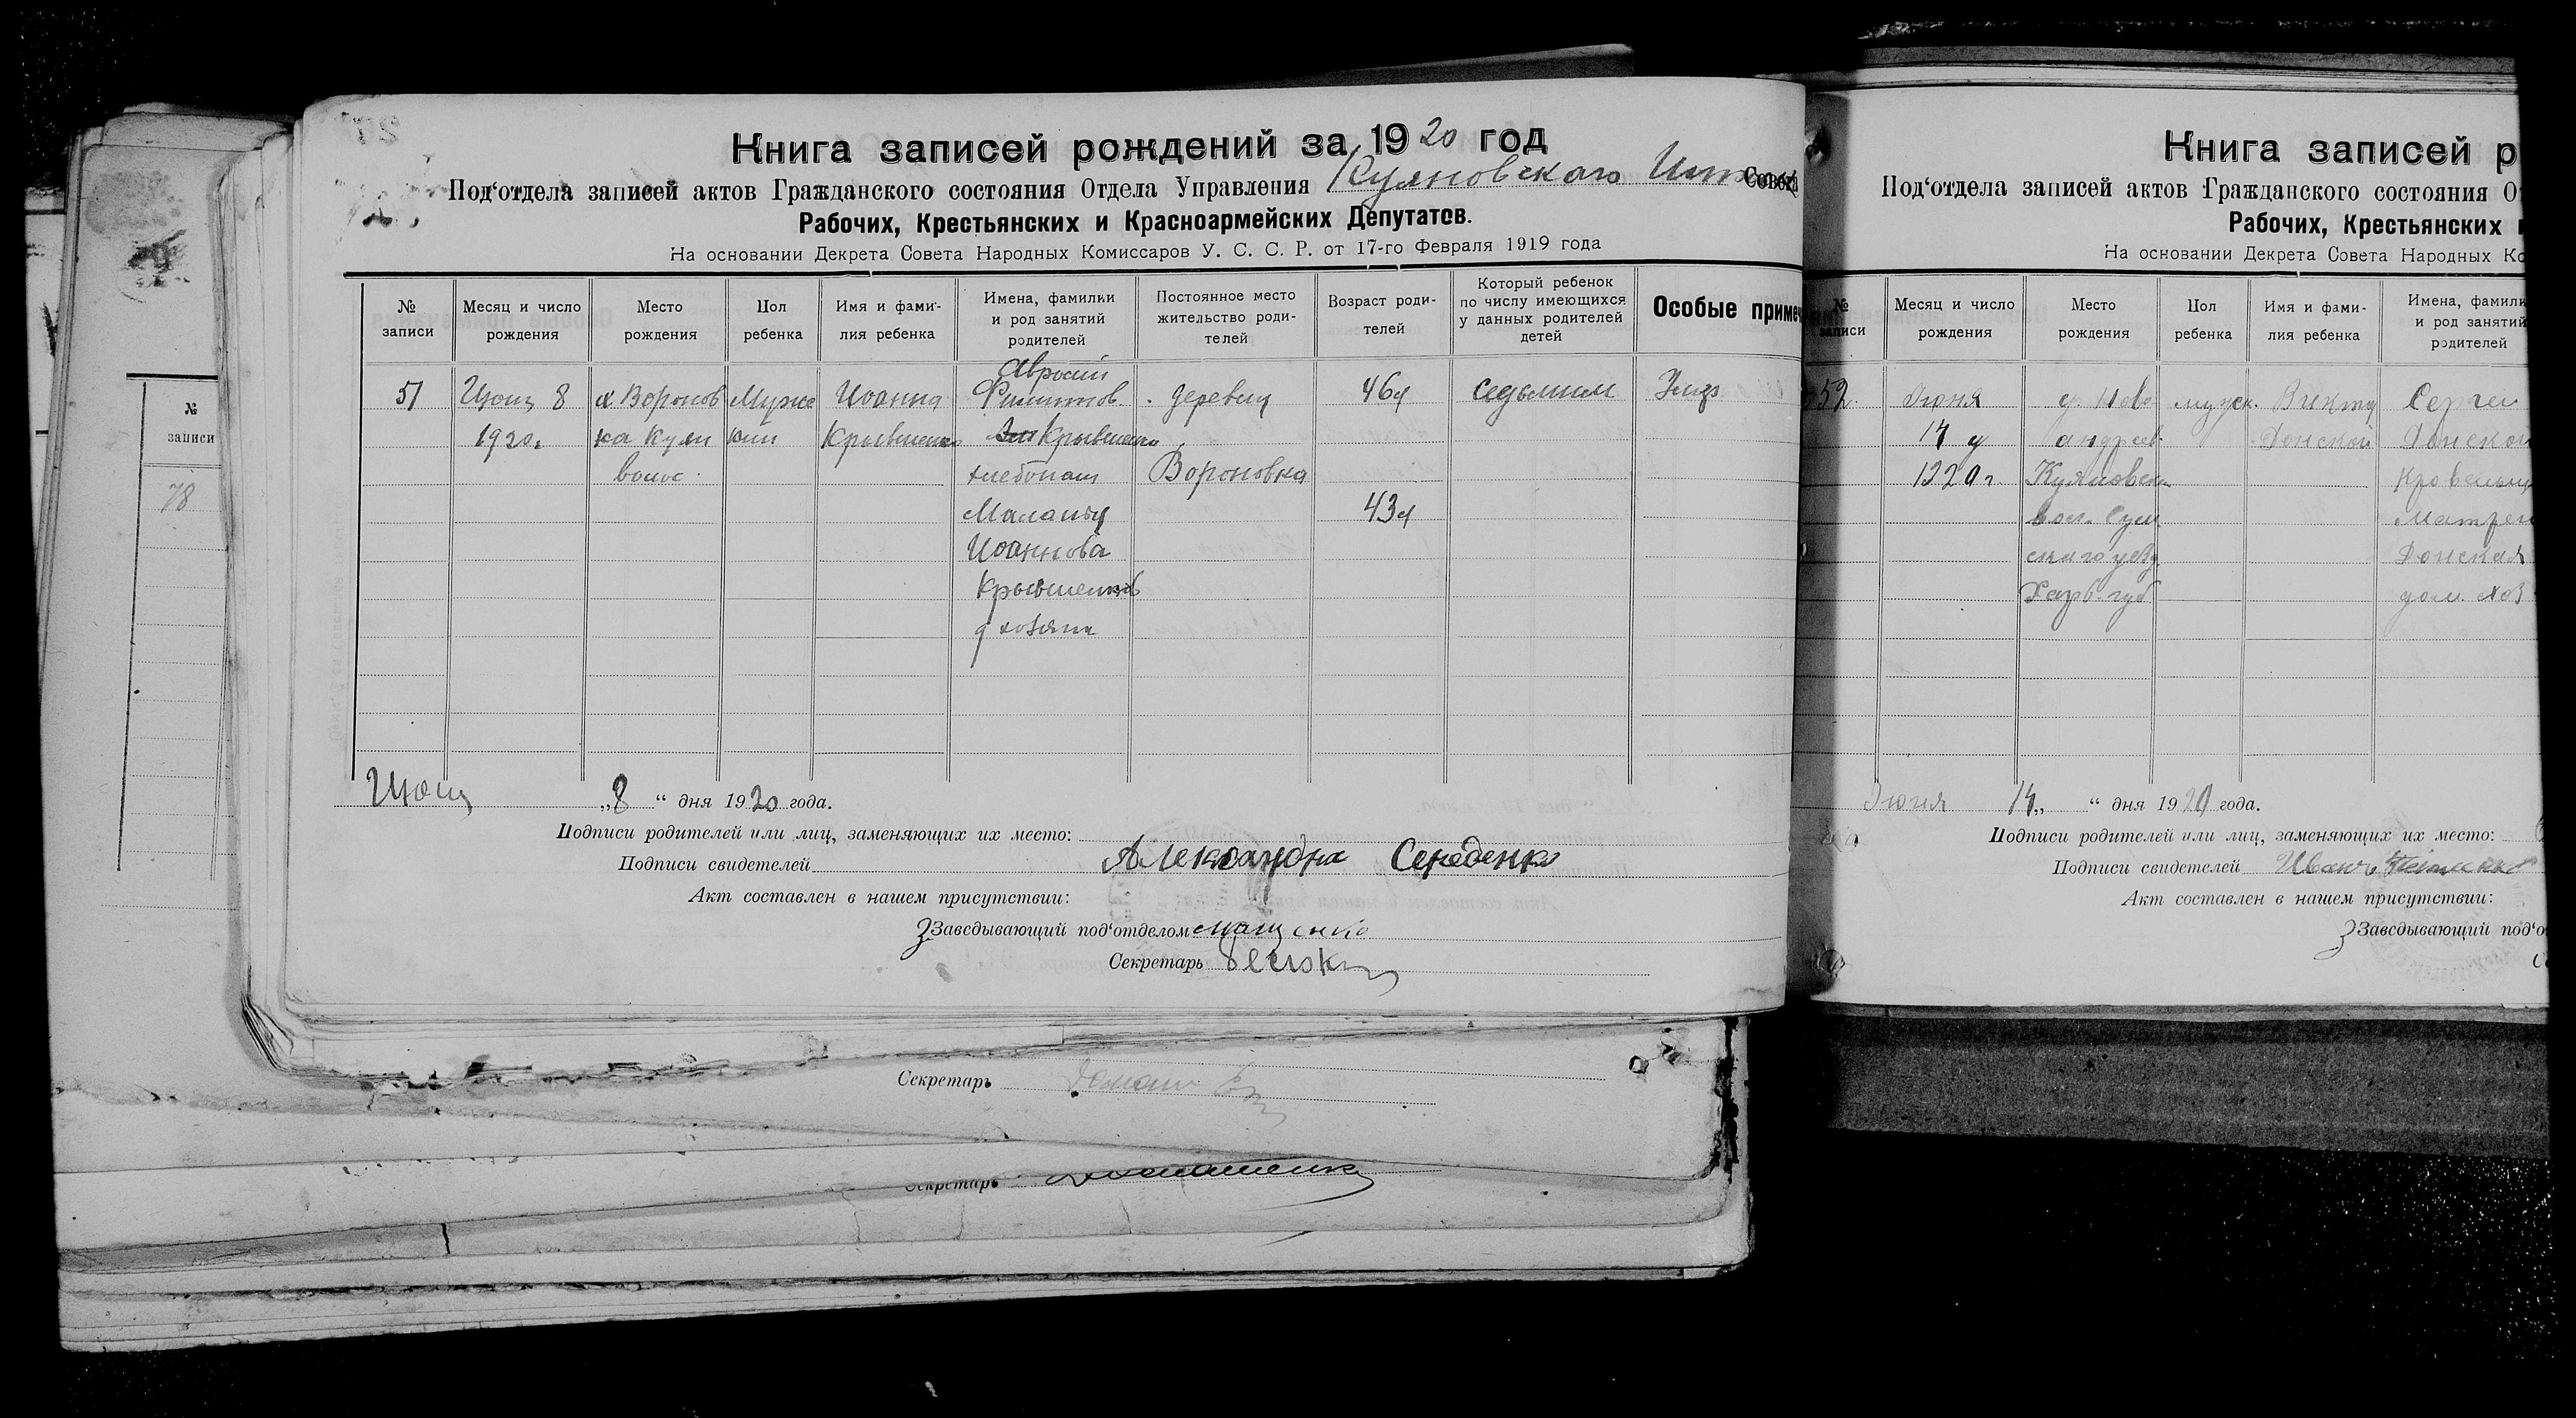 Книга записей рождений за 1920 год
Под‘отдела записей актов Гражданского состояния Отдела Управления Куяновского Совета
Рабочих, Крестьянских и Красноармейских Депутатов.
На основании Декрета Совета Народных Комиссаров У. С. С. Р. от 17-го Февраля 1919 года
№ записи
Месяц и число рождения
Место рождения
Пол ребенка
Имя и фами- лия ребенка
Имена, фамилии и род занятий родителей
Постоянное место жительство роди- телей
Возраст роди- телей
Который ребенок по числу имеющихся у данных родителей детей
Особые приме
51
8
1920г
Воронов
ка Куян
волос.
Муже
кий
Иоанна
Крывшенко
Филиппов.
Крывшенко
хлебопаш
Иоаннова
деревня
Вороновка
46
43
седьмым
8 “ дня 1920 года.
Подписи родителей или лиц, заменяющих их место:
Подписи свидетелей Александра Середенко
Акт составлен в нашем присутствии:
Завсдывающий под‘отделом
Секретарь
Секретарь
Секретарь
№
записи
78
Книга записей р
Под‘отдела записей актов Гражданского состояния О
Рабочих, Крестьянских
На основании Декрета Совета Народных Ко
№ записи
Месяц и число рождения
Место рождения
Пол ребенка
Имя и фами- лия ребенка
Имена, фамили и род занятий родителей
52.
Июня
14
1920г
д. Ново
андреев.
Куяновск
вол. Сум
скаго уезд
Харь. губ
мужск.
Викто
Донской
Сергей
Донской
Донская
дом. хоз
Июня 14 „ “ дня 1920 года.
Подписи родителей или лиц, заменяющих их место:
Подписи свидетелей Иван
Акт составлен в нашем присутствии:
Завсдывающий под‘о